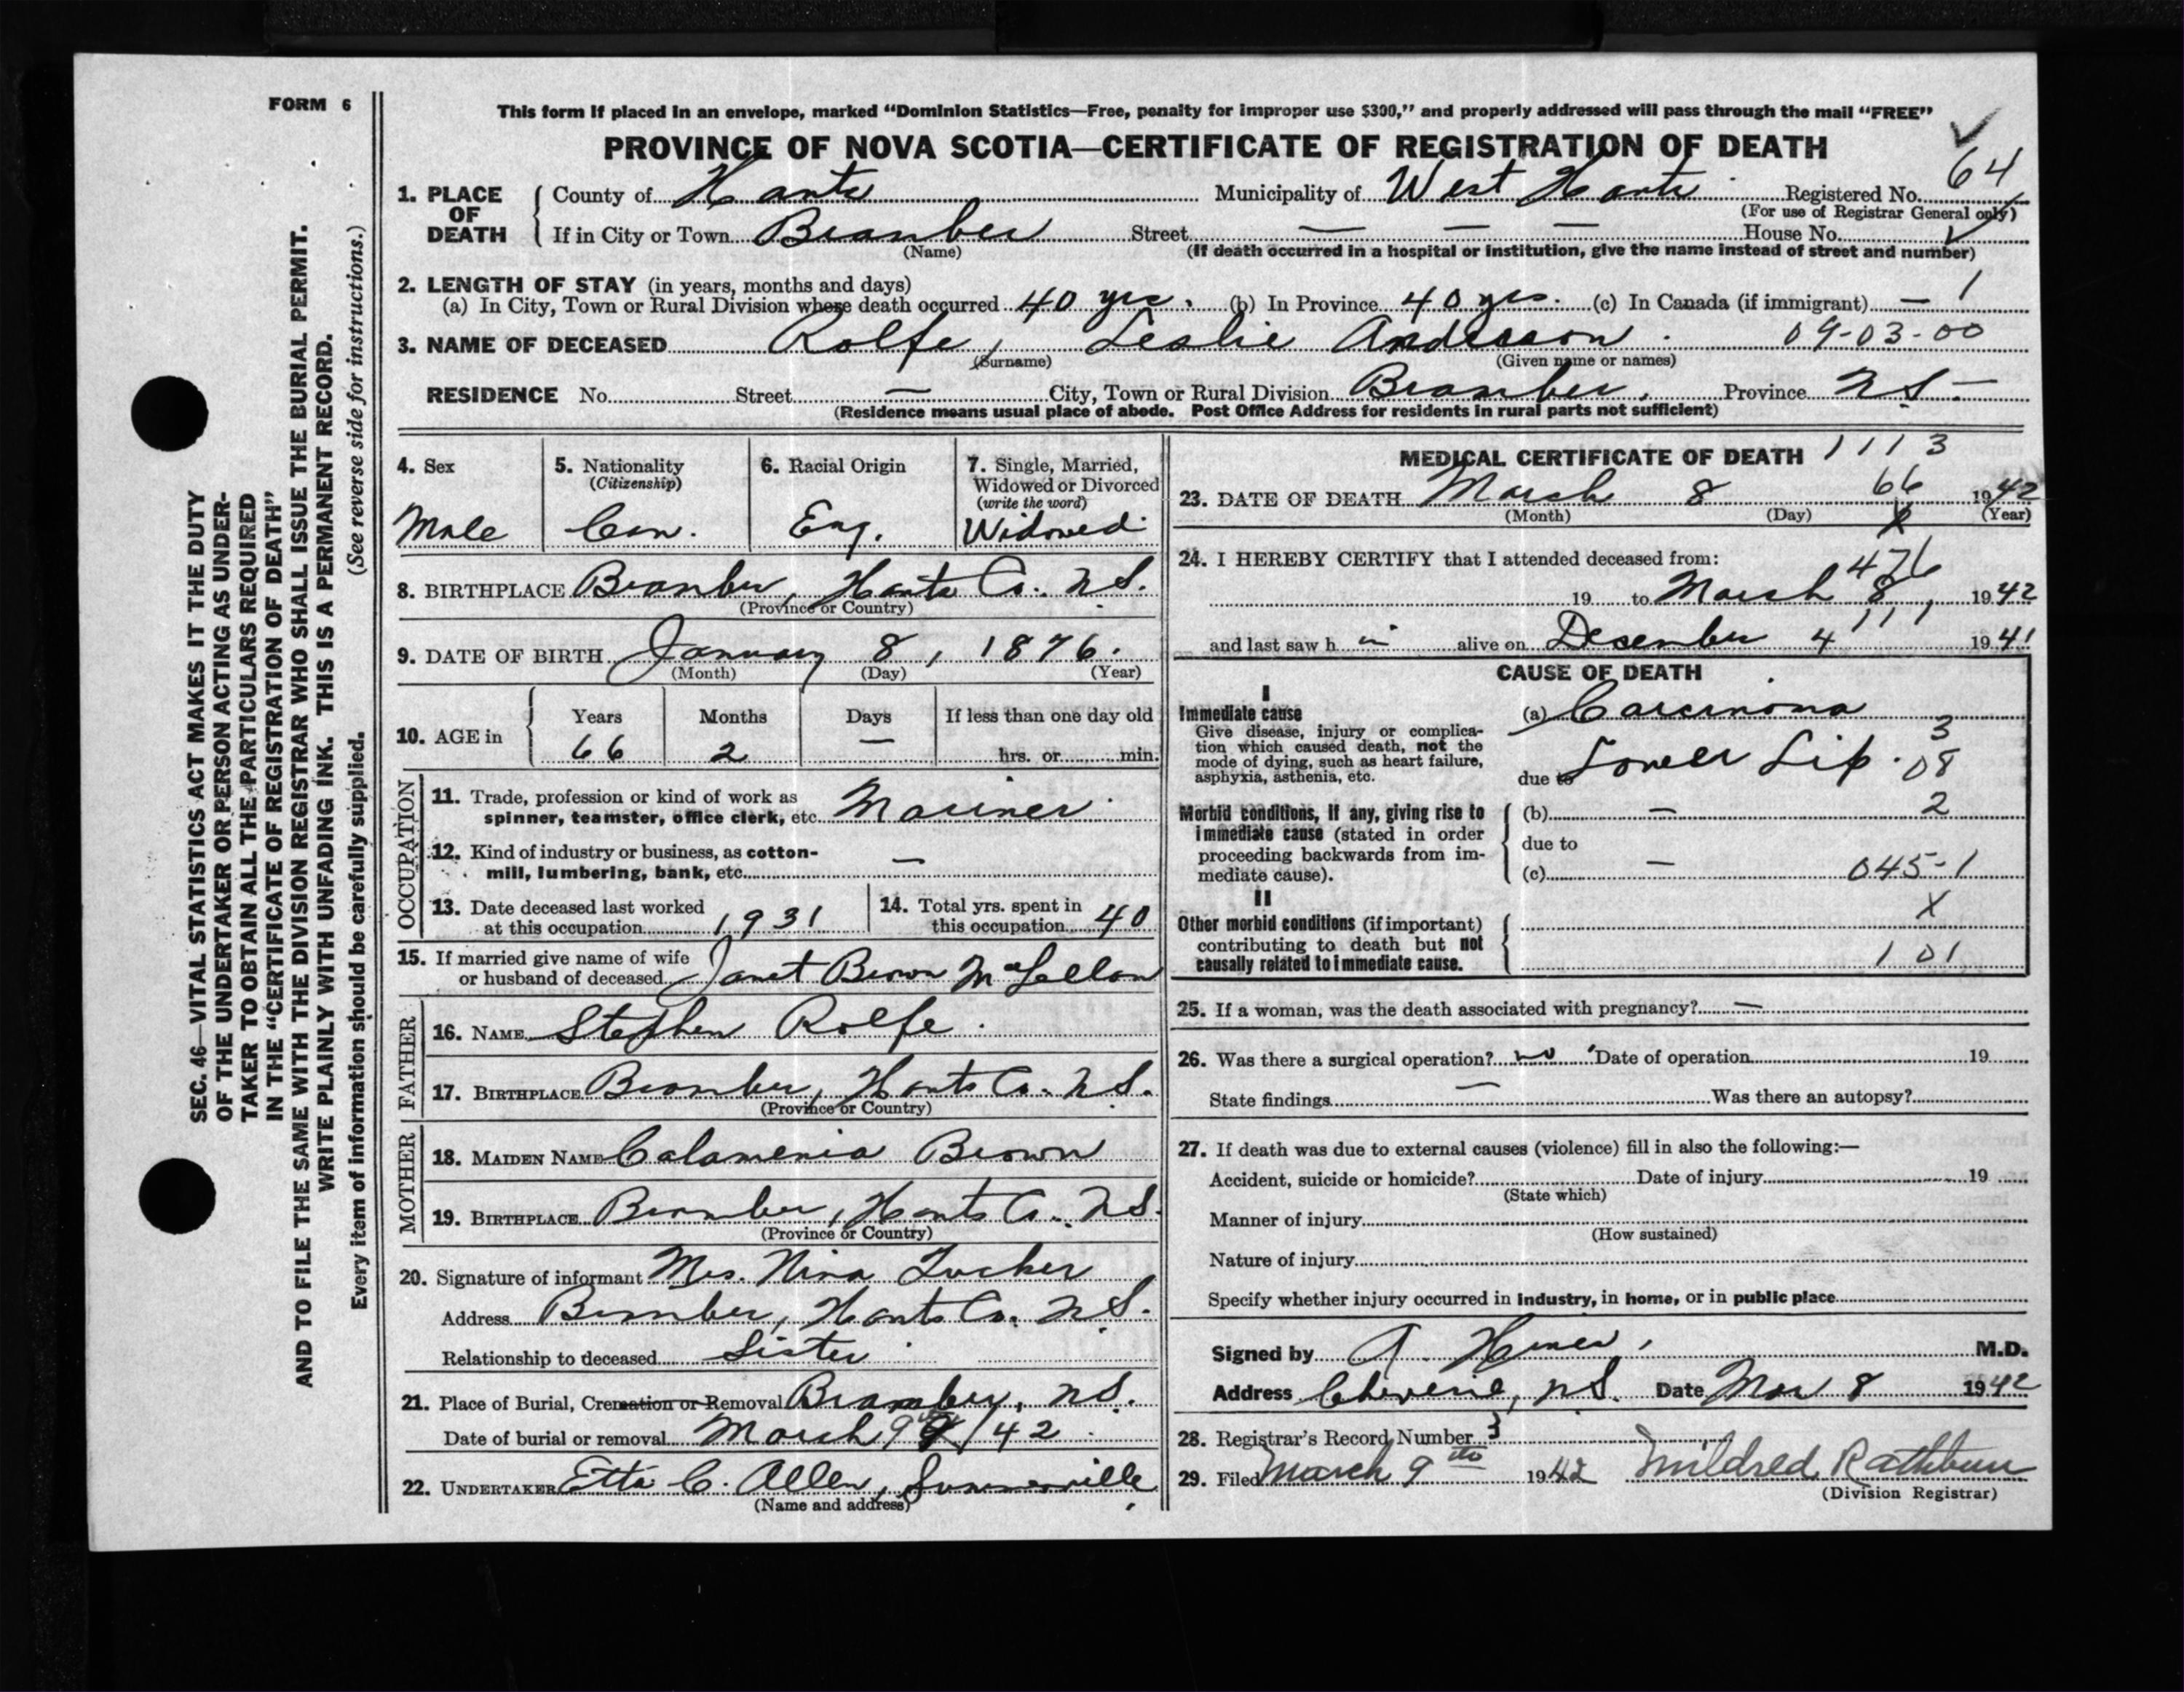 FORM 6
This form if placed in an envelope, marked “Dominion Statistics—Free, penalty for improper use $300,” and properly addressed will pass through the mail “FREE”
PROVINCE OF NOVA SCOTIA—CERTIFICATE OF REGISTRATION OF DEATH
1. PLACE OF DEATH County of Hants Municipality of West Hants Registered No. 64
(For use of Registrar General only)
If in City or Town Bramber Street — — — House No.
(Name) (If death occurred in a hospital or institution, give the name instead of street and number)
2. LENGTH OF STAY (in years, months and days)
(a) In City, Town or Rural Division where death occurred 40 yrs. (b) In Province 40 yrs. (c) In Canada (if immigrant) — 1
3. NAME OF DECEASED Rolfe, Leslie Anderson. 09-03-00
(Surname) (Given name or names)
RESIDENCE No. Street — City, Town or Rural Division Bramber, Province N.S. —
(Residence means usual place of abode. Post Office Address for residents in rural parts not sufficient)
4. Sex
Male
5. Nationality
(Citizenship)
Can.
6. Racial Origin
Eng.
7. Single, Married,
Widowed or Divorced
(write the word)
Widowed
8. BIRTHPLACE Bramber, Hants Co. N.S.
(Province or Country)
9. DATE OF BIRTH January 8, 1876.
(Month) (Day) (Year)
10. AGE in Years Months Days If less than one day old
66 2 — hrs. or min.
OCCUPATION
11. Trade, profession or kind of work as
spinner, teamster, office clerk, etc. Mariner
12. Kind of industry or business, as cotton-
mill, lumbering, bank, etc. —
13. Date deceased last worked
at this occupation 1931
14. Total yrs. spent in
this occupation 40
15. If married give name of wife
or husband of deceased Janet Brown McLellan
FATHER
16. NAME Stephen Rolfe.
17. BIRTHPLACE Bramber, Hants Co. N.S.
(Province or Country)
MOTHER
18. MAIDEN NAME Calamenia Brown
19. BIRTHPLACE Bramber, Hants Co. N.S.
(Province or Country)
20. Signature of informant Mrs. Nina Tucker
Address Bramber, Hants Co. N.S.
Relationship to deceased Sister
21. Place of Burial, Cremation or Removal Bramber, N.S.
Date of burial or removal March 9 /42
22. UNDERTAKER Etta C. Allen, Summerville
(Name and address)
MEDICAL CERTIFICATE OF DEATH 1113
23. DATE OF DEATH March 8 66 1942
(Month) (Day) X (Year)
24. I HEREBY CERTIFY that I attended deceased from:
476
19 to March 8, 1942
111
and last saw h im alive on Desember 4 1941
CAUSE OF DEATH
I
Immediate cause
Give disease, injury or complica-
tion which caused death, not the
mode of dying, such as heart failure,
asphyxia, asthenia, etc.
(a) Carcinoma
3
due to Lower Lip. 08
Morbid conditions, if any, giving rise to
immediate cause (stated in order
proceeding backwards from im-
mediate cause).
(b) — 2
due to
(c) — 045-1
II
X
Other morbid conditions (if important)
contributing to death but not
causally related to immediate cause.
101
25. If a woman, was the death associated with pregnancy? —
26. Was there a surgical operation? no Date of operation 19
State findings — Was there an autopsy?
27. If death was due to external causes (violence) fill in also the following:—
Accident, suicide or homicide? Date of injury 19
(State which)
Manner of injury
(How sustained)
Nature of injury
Specify whether injury occurred in industry, in home, or in public place
Signed by A. M.D.
Address Cheverie, N.S. Date Mar 8 1942
28. Registrar's Record Number 3
29. Filed March 9th 1942 Mildred Rathbun
(Division Registrar)
SEC. 46—VITAL STATISTICS ACT MAKES IT THE DUTY
OF THE UNDERTAKER OR PERSON ACTING AS UNDER-
TAKER TO OBTAIN ALL THE PARTICULARS REQUIRED
IN THE “CERTIFICATE OF REGISTRATION OF DEATH”
AND TO FILE THE SAME WITH THE DIVISION REGISTRAR WHO SHALL ISSUE THE BURIAL PERMIT.
WRITE PLAINLY WITH UNFADING INK. THIS IS A PERMANENT RECORD.
Every item of information should be carefully supplied. (See reverse side for instructions.)